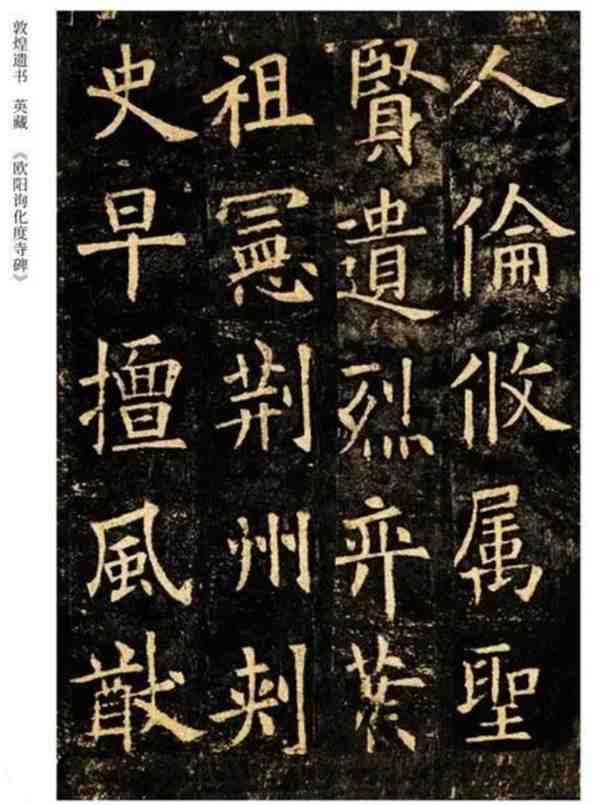 人倫攸属聖
賢遺烈弈葉
祖憲荊州刾
史早擅風猷
敦煌遗书 英藏 《欧阳询化度寺碑》